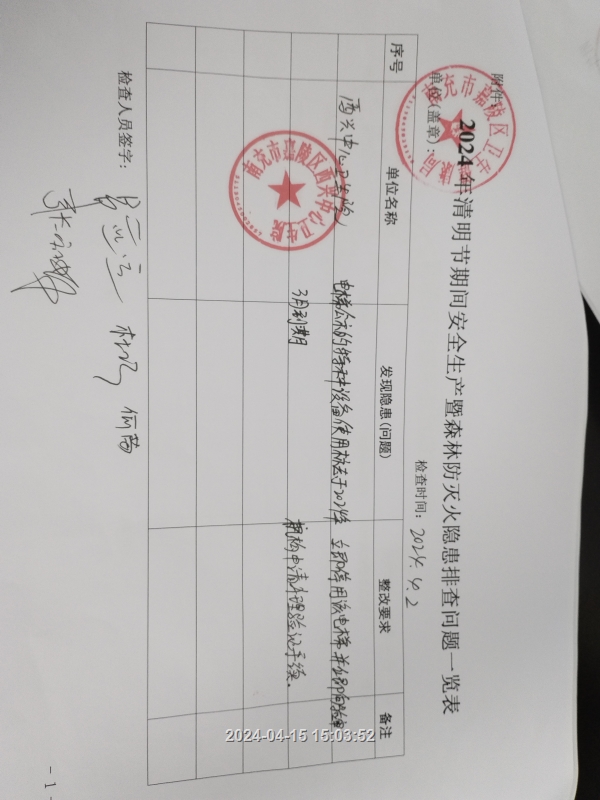 附件:
2024年清明节期间安全生产暨森林防灭火隐患排查问题一览表
单位(盖章):
南充市嘉陵区卫生健康局
检查时间: 2024.4.2
序号 单位名称 发现隐患(问题) 整改要求 备注
西兴中心卫生院 电梯公示的特种设备使用标志于2024年 立即停用该电梯并立即向
3月到期 机构申请办理验证手续.
南充市嘉陵区西兴中心卫生院
检查人员签字:
- 1 -
2024-04-15 15:03:52